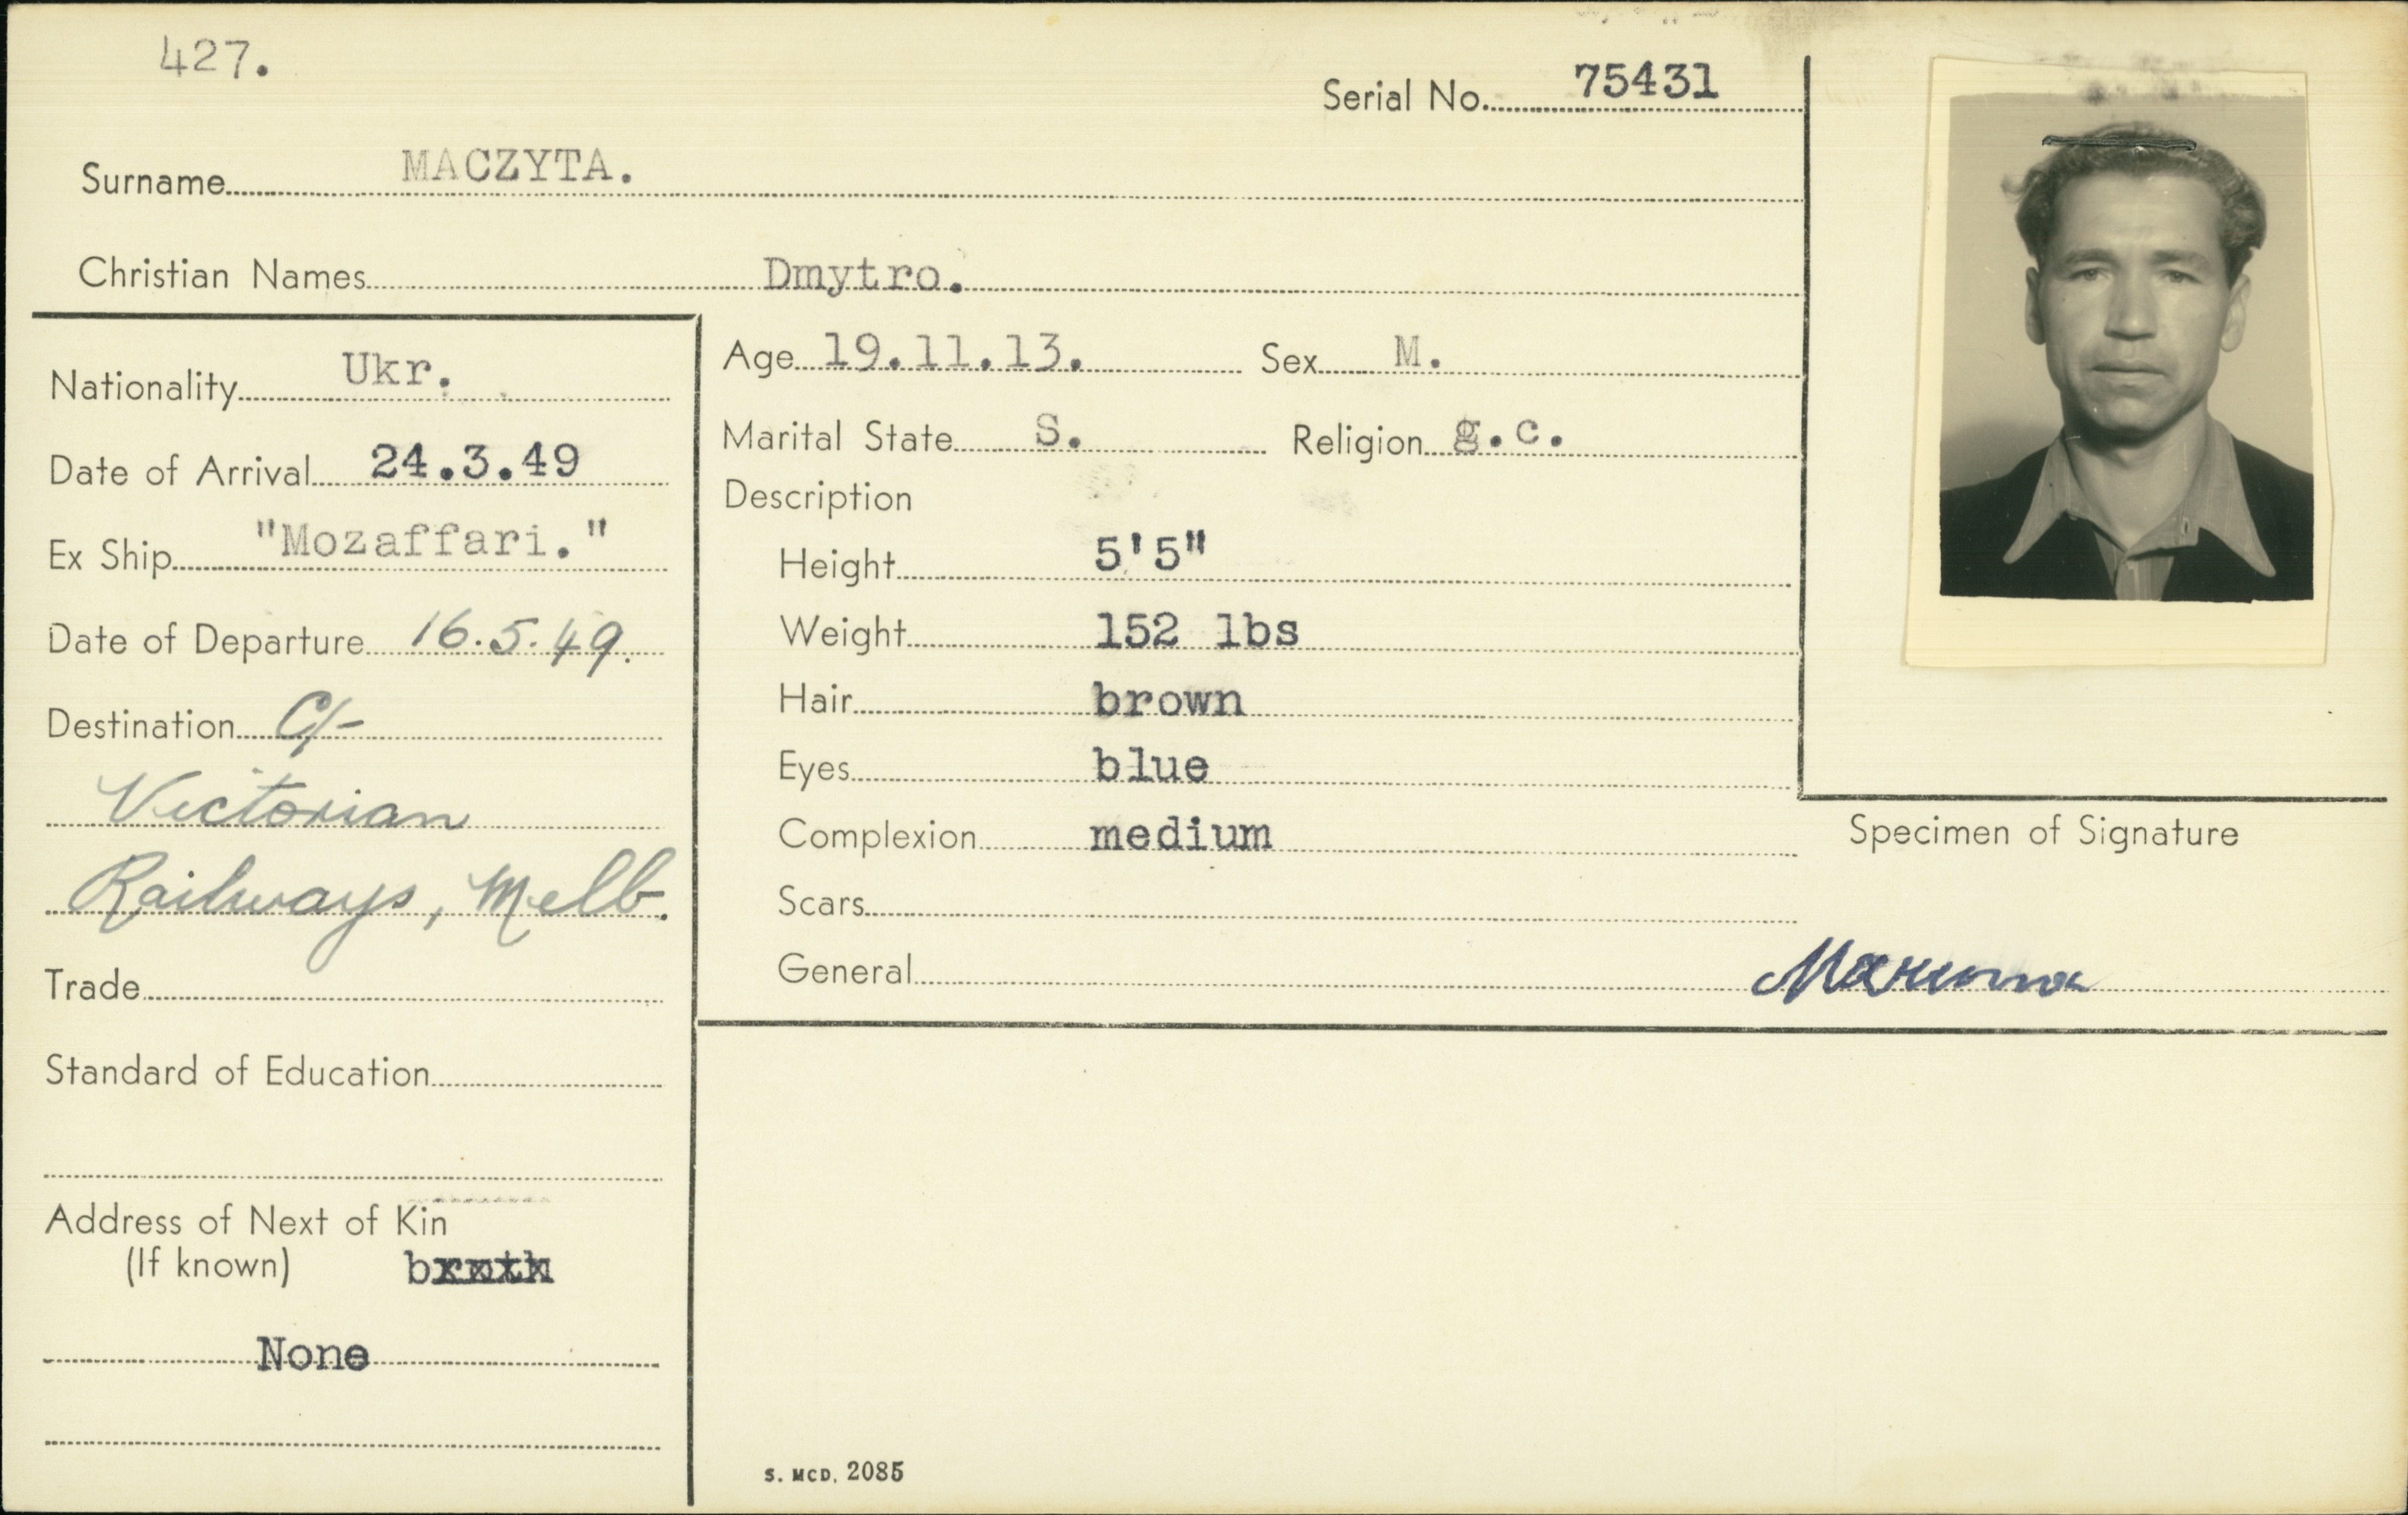 427.
Serial No. 75431
Surname MACZYTA.
Christian Names Dmytro.
Nationality Ukr.
Date of Arrival 24.3.49
Ex Ship "Mozaffari."
Date of Departure 16.5.49.
Destination C/-
Victorian
Railways, Melb.
Trade
Standard of Education
Address of Next of Kin
(If known)
None
Age 19.11.13. Sex M.
Marital State S. Religion g.c.
Description
Height 5'5"
Weight 152 lbs
Hair brown
Eyes blue
Complexion medium
Scars
General
Specimen of Signature
S. MCD. 2085